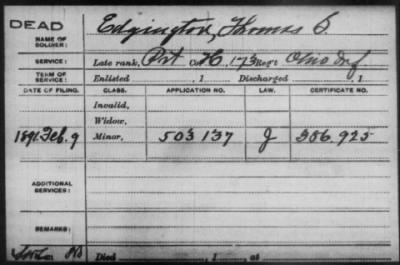 DEAD
NAME OF SOLDIER: Edgington, Thomas B.
SERVICE: Late rank, Pvt Co. H, 173 Reg't Ohio Inf
TERM OF SERVICE: Enlisted , 1 Discharged , 1
DATE OF FILING. CLASS. APPLICATION NO. LAW. CERTIFICATE NO.
Invalid,
Widow,
1891 Feb. 9 Minor, 503137 J 386.925
ADDITIONAL SERVICES:
REMARKS:
Died , 1 , at